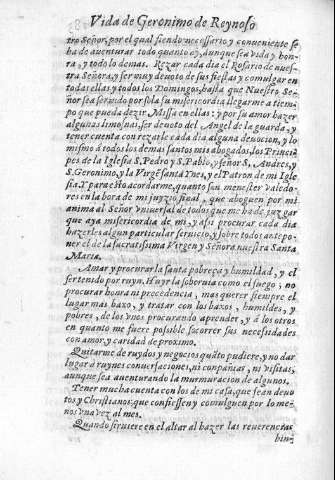 Vida de Geronimo de Reynoso
tro Señor, por el qual siendo necessario y conueniente se
ha de auenturar todo quanto ay, aunque sea vida y hon-
ra, y todo lo demas. Rezar cada dia el Rosario de nues-
tra Señora, y ser muy deuoto de sus fiestas y comulgar en
todas ellas y todos los Domingos, hasta que Nuestro Se-
ñor sea seruido por sola su misericordia llegarme a tiem-
po que pueda dezir Missa en ellas: y por su amor hazer
alguna limosna: ser deuoto del Angel de la guarda, y
tener cuenta con rezarle cada dia alguna deuocion, y lo
mismo â todos los demas santos mis abogados, los Princi-
pes de la Iglesia S. Pedro y S. Pablo, y señor S. Andres, y
S. Geronimo, y la Virgẽ santa Ynes, y el Patron de mi Igle
sia. Y para esto acordarme, quanto son menester valedo-
res en la hora de mi juyzio final, que aboguen por mi
anima al Señor vniuersal de todos que me ha de juzgar
que aya misericordia de mi, y assi procurar cada dia
hazerles algun particular seruicio, y sobre todos antepo-
ner el de la sacratissima Virgen y Señora nuestra Santa
Maria.
Amar y procurar la santa pobreza y humildad, y el
ser tenido por ruyn. Huyr la soberuia como el fuego; no
procurar honra ni precedencia, mas querer siempre el
lugar mas baxo, y tratar con los baxos, humildes, y
pobres, de los vnos procurando aprender, y â los otros
en quanto me fuere posible socorrer sus necesidades
con amor, y caridad de proximo.
Quitarme de ruydos y negocios quãto pudiere, y no dar
lugar â ruynes conuersaciones, ni conpañias, ni visitas,
aunque sea auenturando la murmuracion de algunos.
Tener mucha cuenta con los de mi casa, que sean deuo
tos y Christianos: que confiessen y comulguen por lo me-
nos vna vez al mes.
Quando siruiere en el altar al hazer las reuerencias
hin-